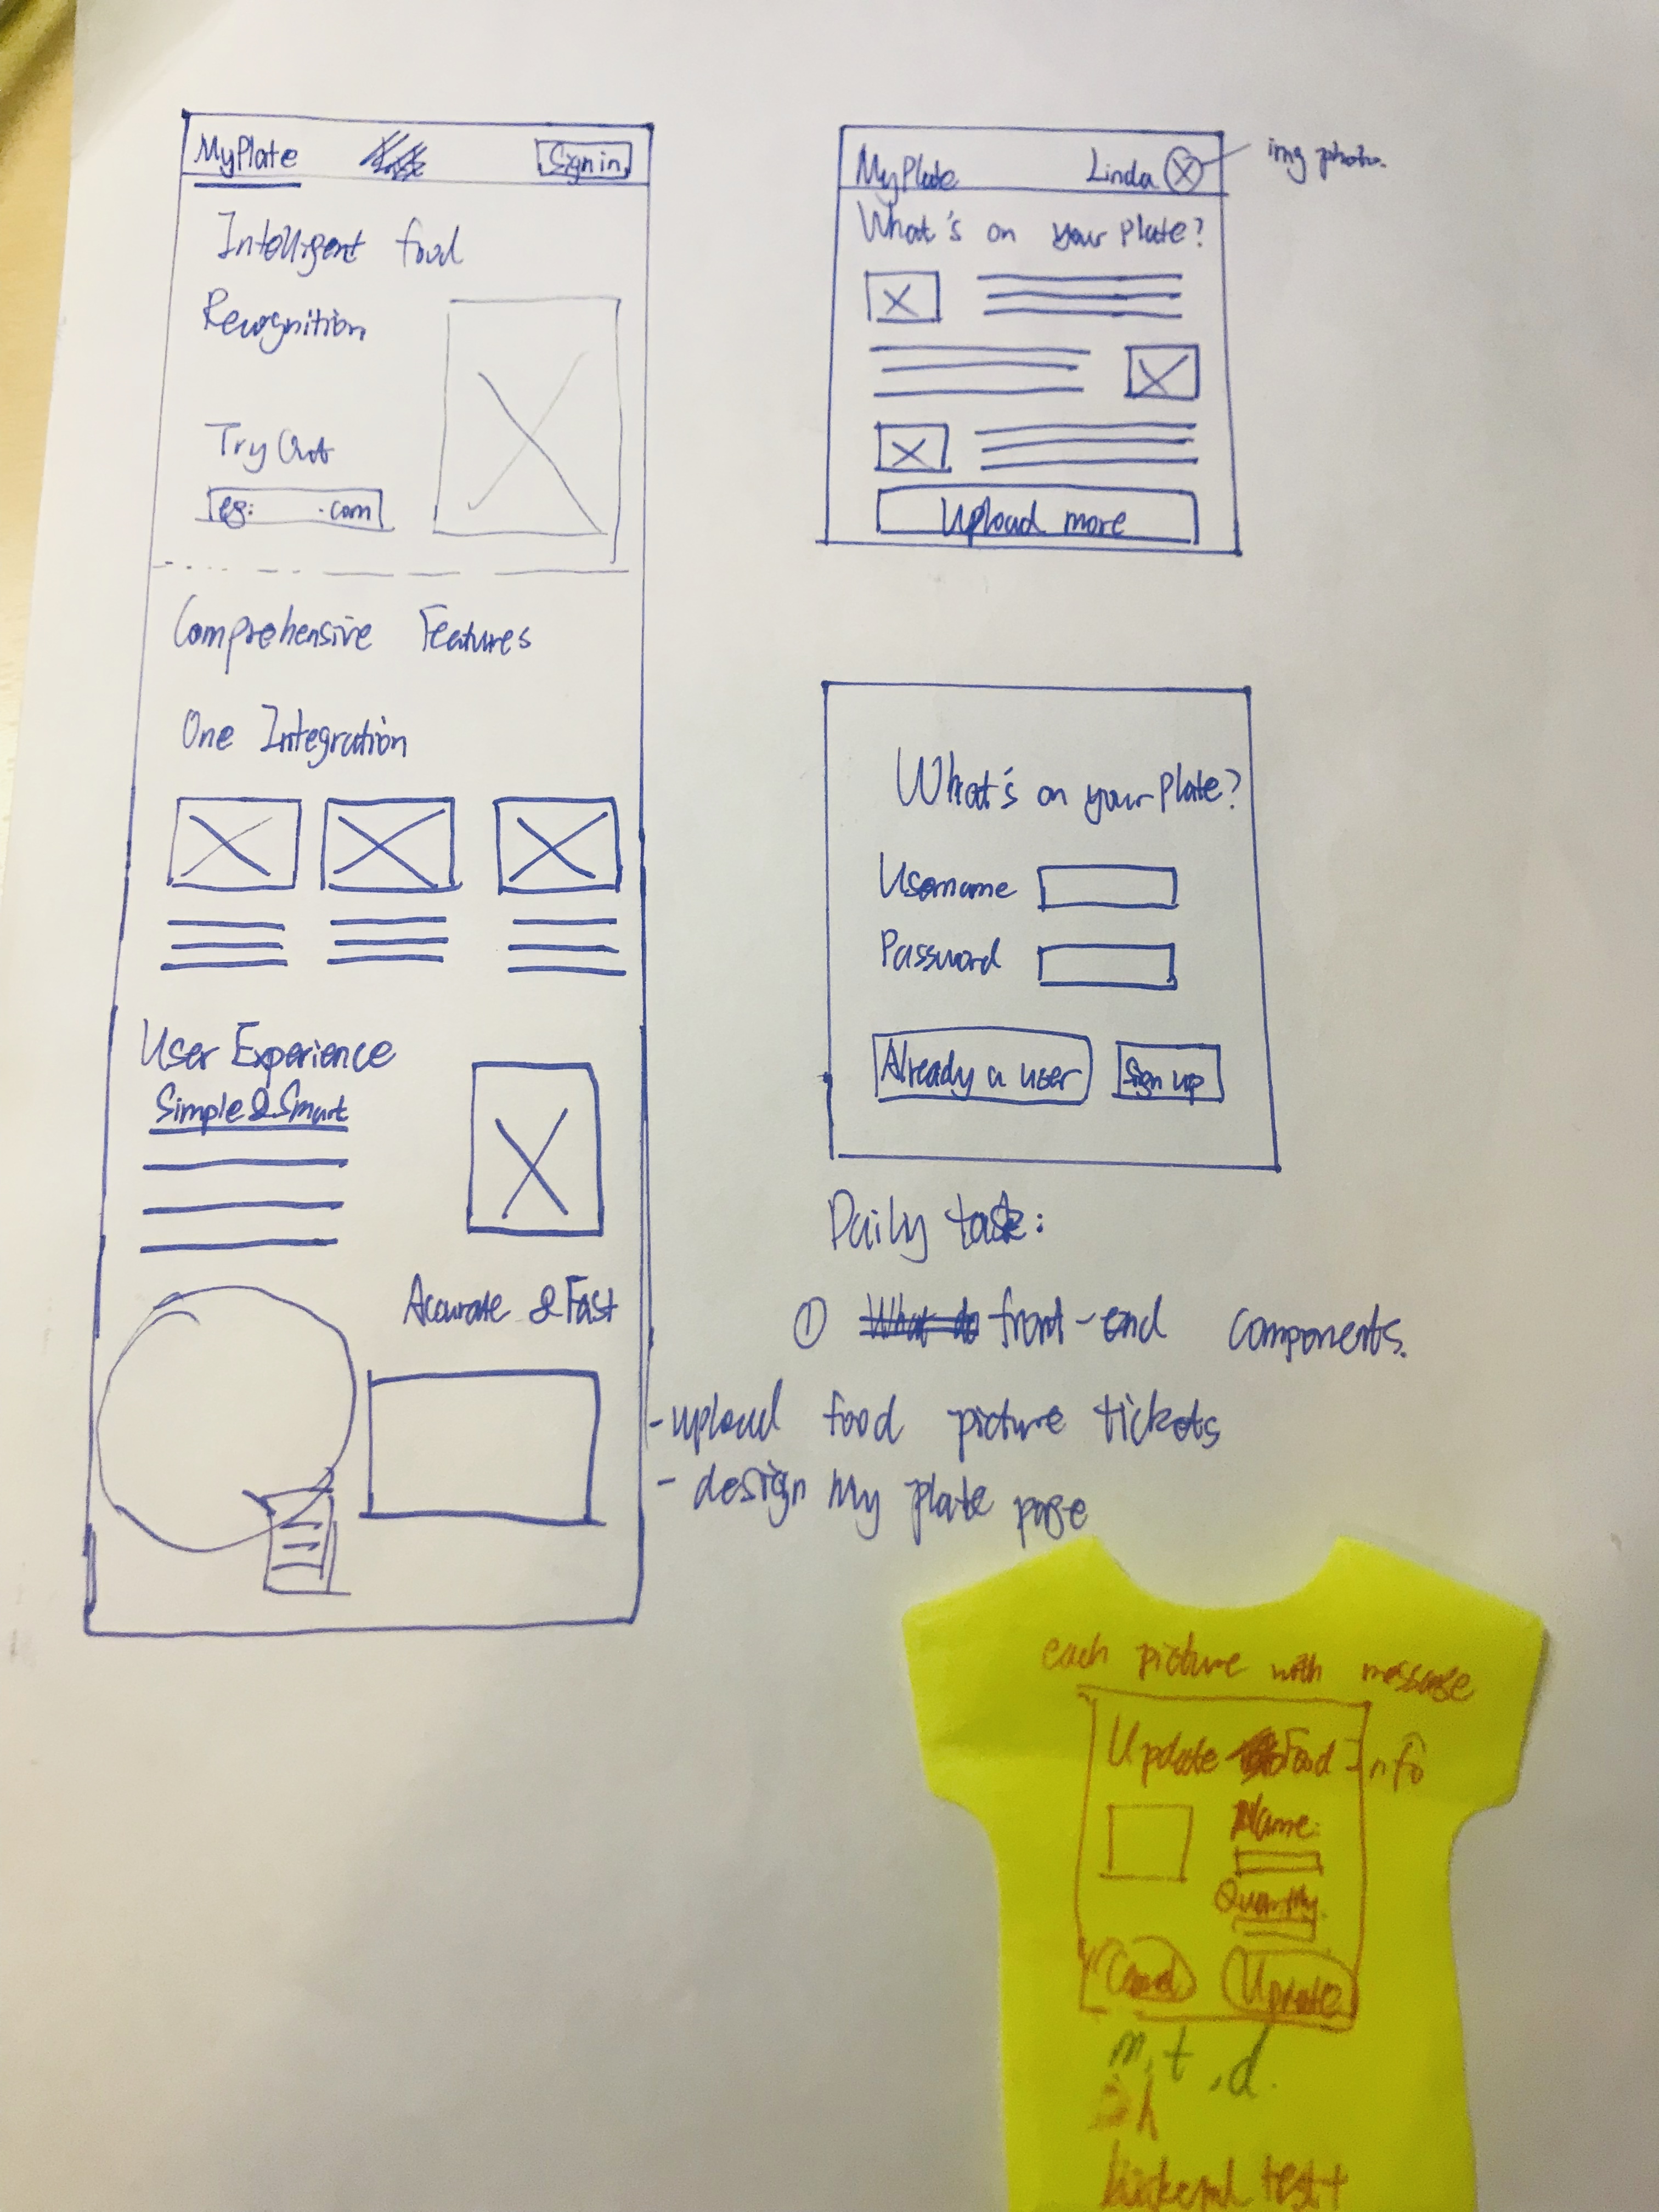 MyPlate Sign in
Intelligent food
Recognition
Try Out
eg: .com
Comprehensive Features
One Integration
User Experience
Simple & Smart
Accurate & Fast
MyPlate Linda
img photo.
What's on your plate?
Upload more
What's on your plate?
Username
Password
Already a user Sign up
Daily task:
① What do front-end components.
- upload food picture tickets
- design my plate page
each picture with message
Update Food Info
Name:
Quantity
Cancel Update
m, t, d.
backend test